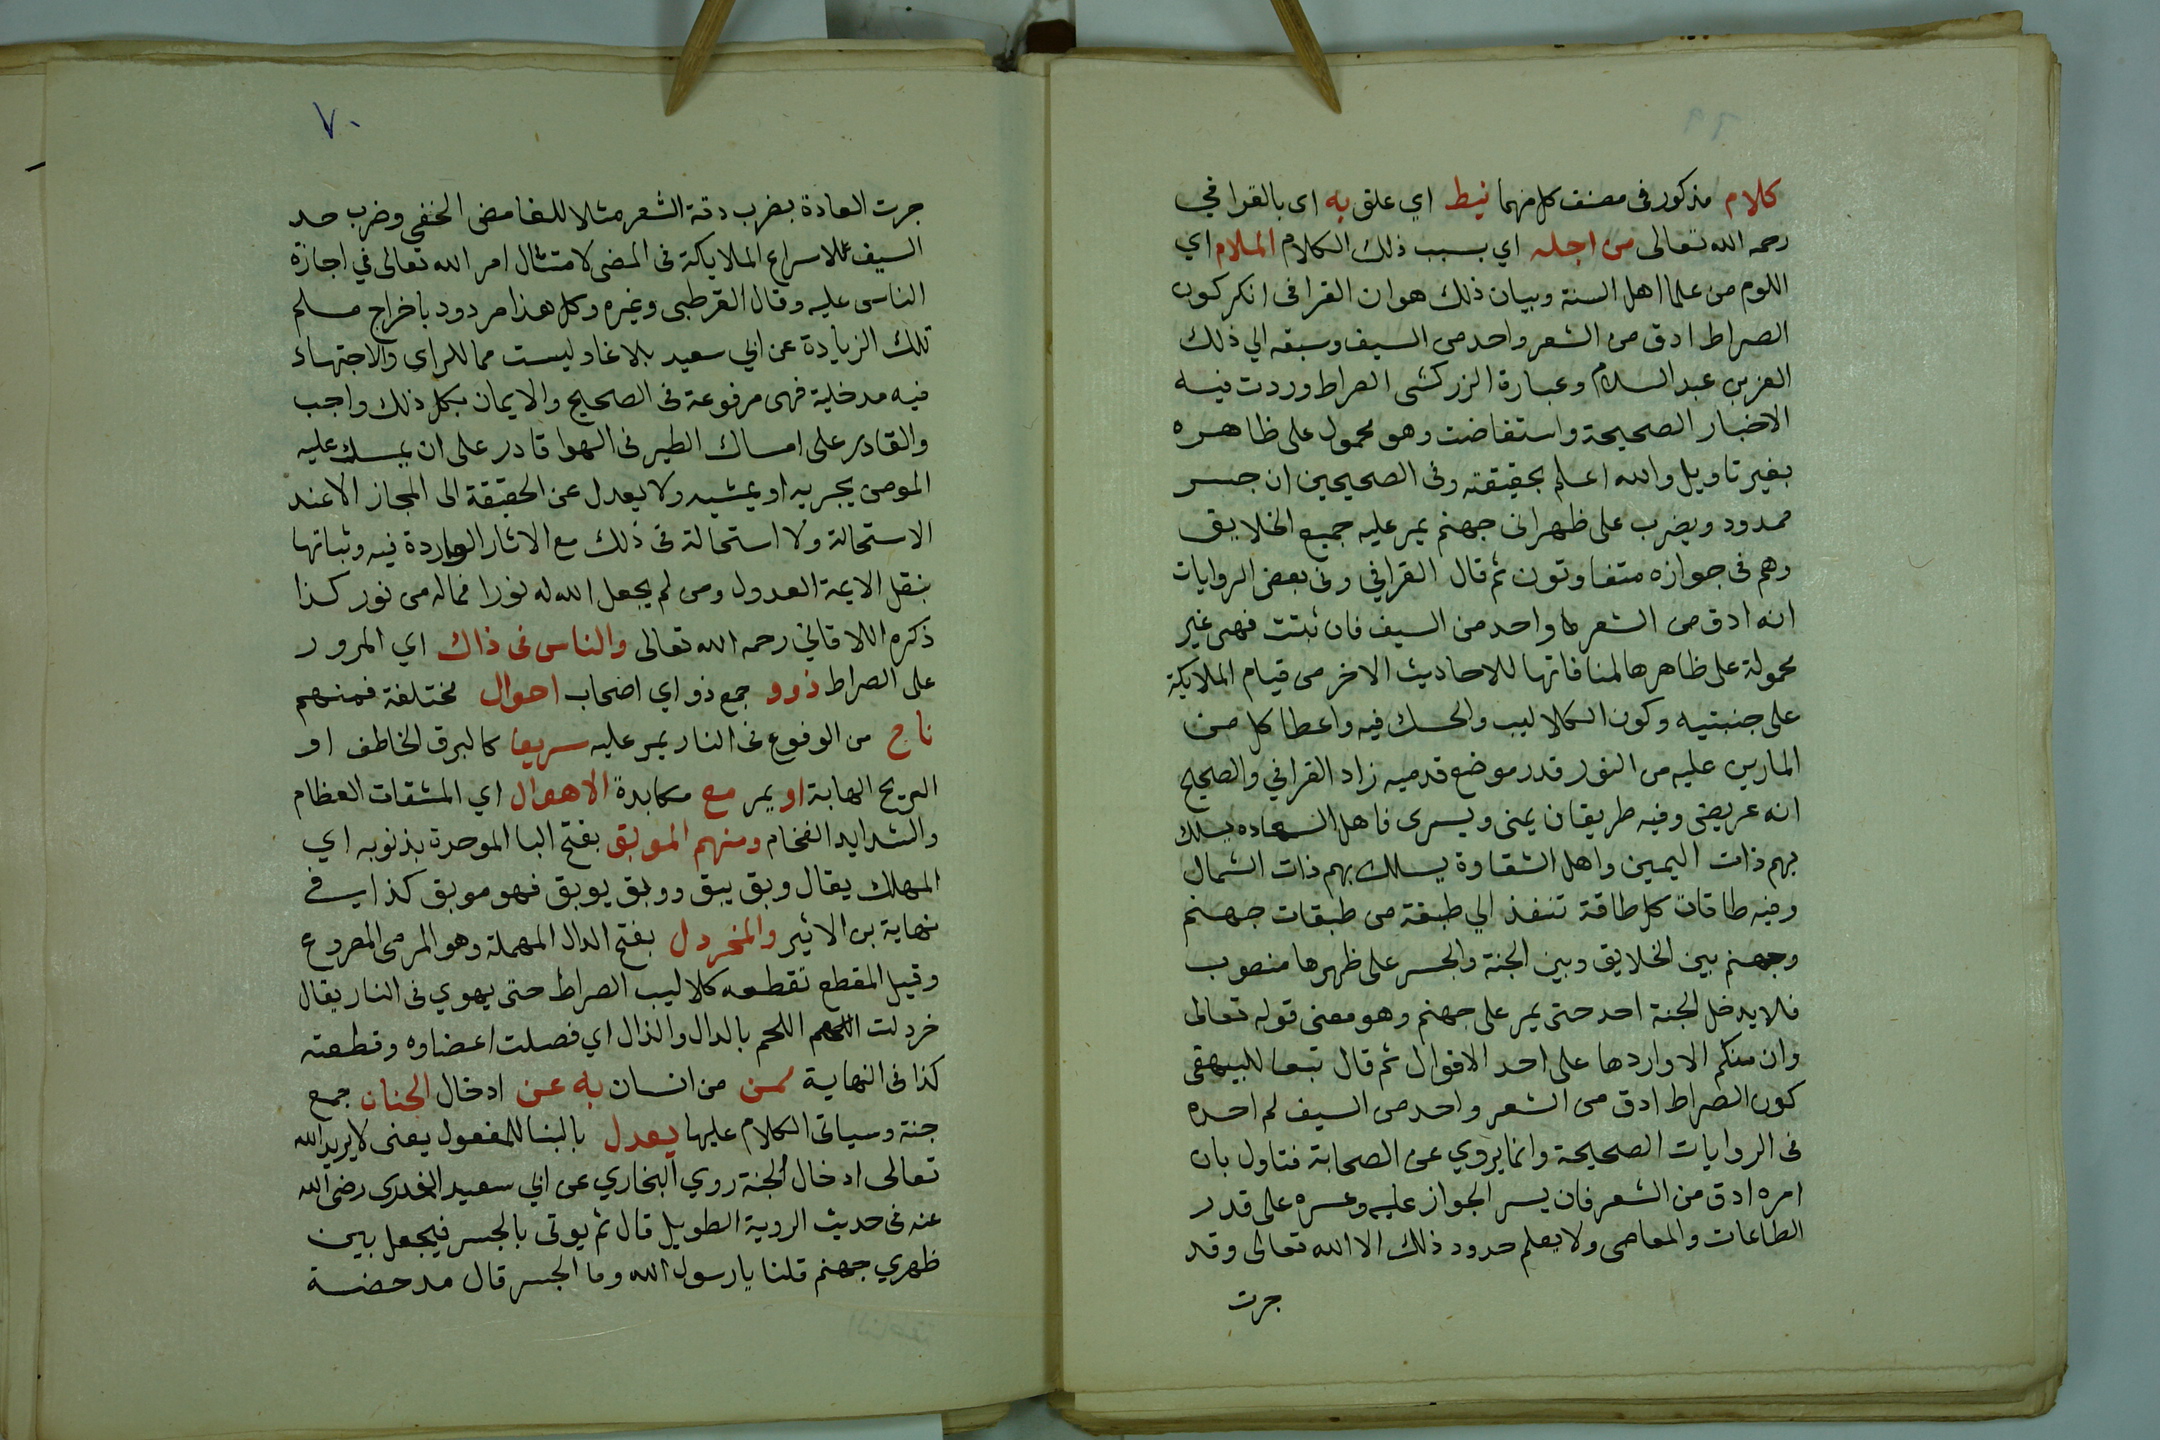 كلام مذكور في مصنف كل منهما نيط اي علق به اي بالقرافي
رحمه الله تعالى من اجله اي بسبب ذلك الكلام الملام اي
اللوم من علما اهل السنة وبيان ذلك هو ان القرافى انكر كون
الصراط ادق من الشعر واحد من السيف وسبقه الي ذلك
العز بن عبد السلام وعبارة الزركشى الصراط وردت فيه
الاخبار الصحيحة واستفاضت وهو محمول على ظاهره
بغير تاويل والله اعلم بحقيقته وفى الصحيحين ان جسر
ممدود ويضرب على ظهرانى جهنم يمر عليه جميع الخلايق
وهم فى جوازه متفاوتون ثم قال القرافي وفى بعض الروايات
انه ادق من الشعر واحد من السيف فان ثبتت فهى غير
محمولة على ظاهرها لمنافاتها للاحاديث الاخر من قيام الملايكة
على جنبتيه وكون الكلاليب والحسك فيه واعطا كل من
المارين عليه من النور قدر موضع قدميه زاد القرافي والصحيح
انه عريض وفيه طريقان يمنى ويسرى فاهل السعاده يسلك
بهم ذات اليمين واهل الشقاوة يسلك بهم ذات الشمال
وفيه طاقات كل طاقة تنفذ الي طبقة من طبقات جهنم
وجهنم بين الخلايق وبين الجنة والجسر على ظهرها منصوب
فلا يدخل الجنة احد حتى يمر على جهنم وهو معنى قوله تعالى
وان منكم الا واردها على احد الاقوال ثم قال تبعا للبيهقى
كون الصراط ادق من الشعر واحد من السيف لم اجده
فى الروايات الصحيحة وانما يروي عن الصحابة فتاول بان
امره ادق من الشعر فان يسر الجواز عليه وعسره على قدر
الطاعات والمعاصى ولا يعلم حدود ذلك الا الله تعالى وقد
جرت
٧٠
جرت العادة بضرب دقة الشعر مثلا للغامض الخفي وضرب حد
السيف لاسراع الملايكة فى المضى لامتثال امر الله تعالى في اجازة
الناس عليه وقال القرطبى وغيره وكل هذا مردود باخراج مسلم
تلك الزيادة عن ابي سعيد بلاغا وليست مما للراى والاجتهاد
فيه مدخلية فهى مرفوعة فى الصحيح والايمان بكل ذلك واجب
والقادر على امساك الطير فى الهوا قادر على ان يمسك عليه
المومن يجريه او يمشيه ولا يعدل عن الحقيقة الى المجاز الا عند
الاستحالة ولا استحالة فى ذلك مع الاثار الواردة فيه وثباتها
بنقل الايمة العدول ومن لم يجعل الله له نورا فماله من نور كذا
ذكره اللاقاني رحمه الله تعالى والناس فى ذاك اي المرور
على الصراط ذوو جمع ذو اي اصحاب احوال مختلفة فمنهم
ناج من الوقوع فى النار يمر عليه سريعا كالبرق الخاطف او
الريح الهابة او يمر مع مكابدة الاهوال اي المشقات العظام
والشدايد الفخام ومنهم الموبق بفتح البا الموحدة بذنوبه اي
المهلك يقال وبق يبق ووبق يوبق فهو موبق كذا في
نهاية بن الاثير والمخردل بفتح الدال المهملة وهو المرمى المصروع
وقيل المقطع تقطعه كلاليب الصراط حتى يهوي فى النار يقال
خردلت اللحم بالدال والذال اي فصلت اعضاوه وقطعته
كذا فى النهاية ممن من انسان به عن ادخال الجنان جمع
جنة وسياتى الكلام عليها يعدل بالبنا للمفعول يعنى لا يريد الله
تعالى ادخال الجنة روي البخاري عن ابي سعيد الخدرى رضى الله
عنه فى حديث الروية الطويل قال ثم يوتى بالجسر فيجعل بين
ظهري جهنم قلنا يا رسول الله وما الجسر قال مدحضة